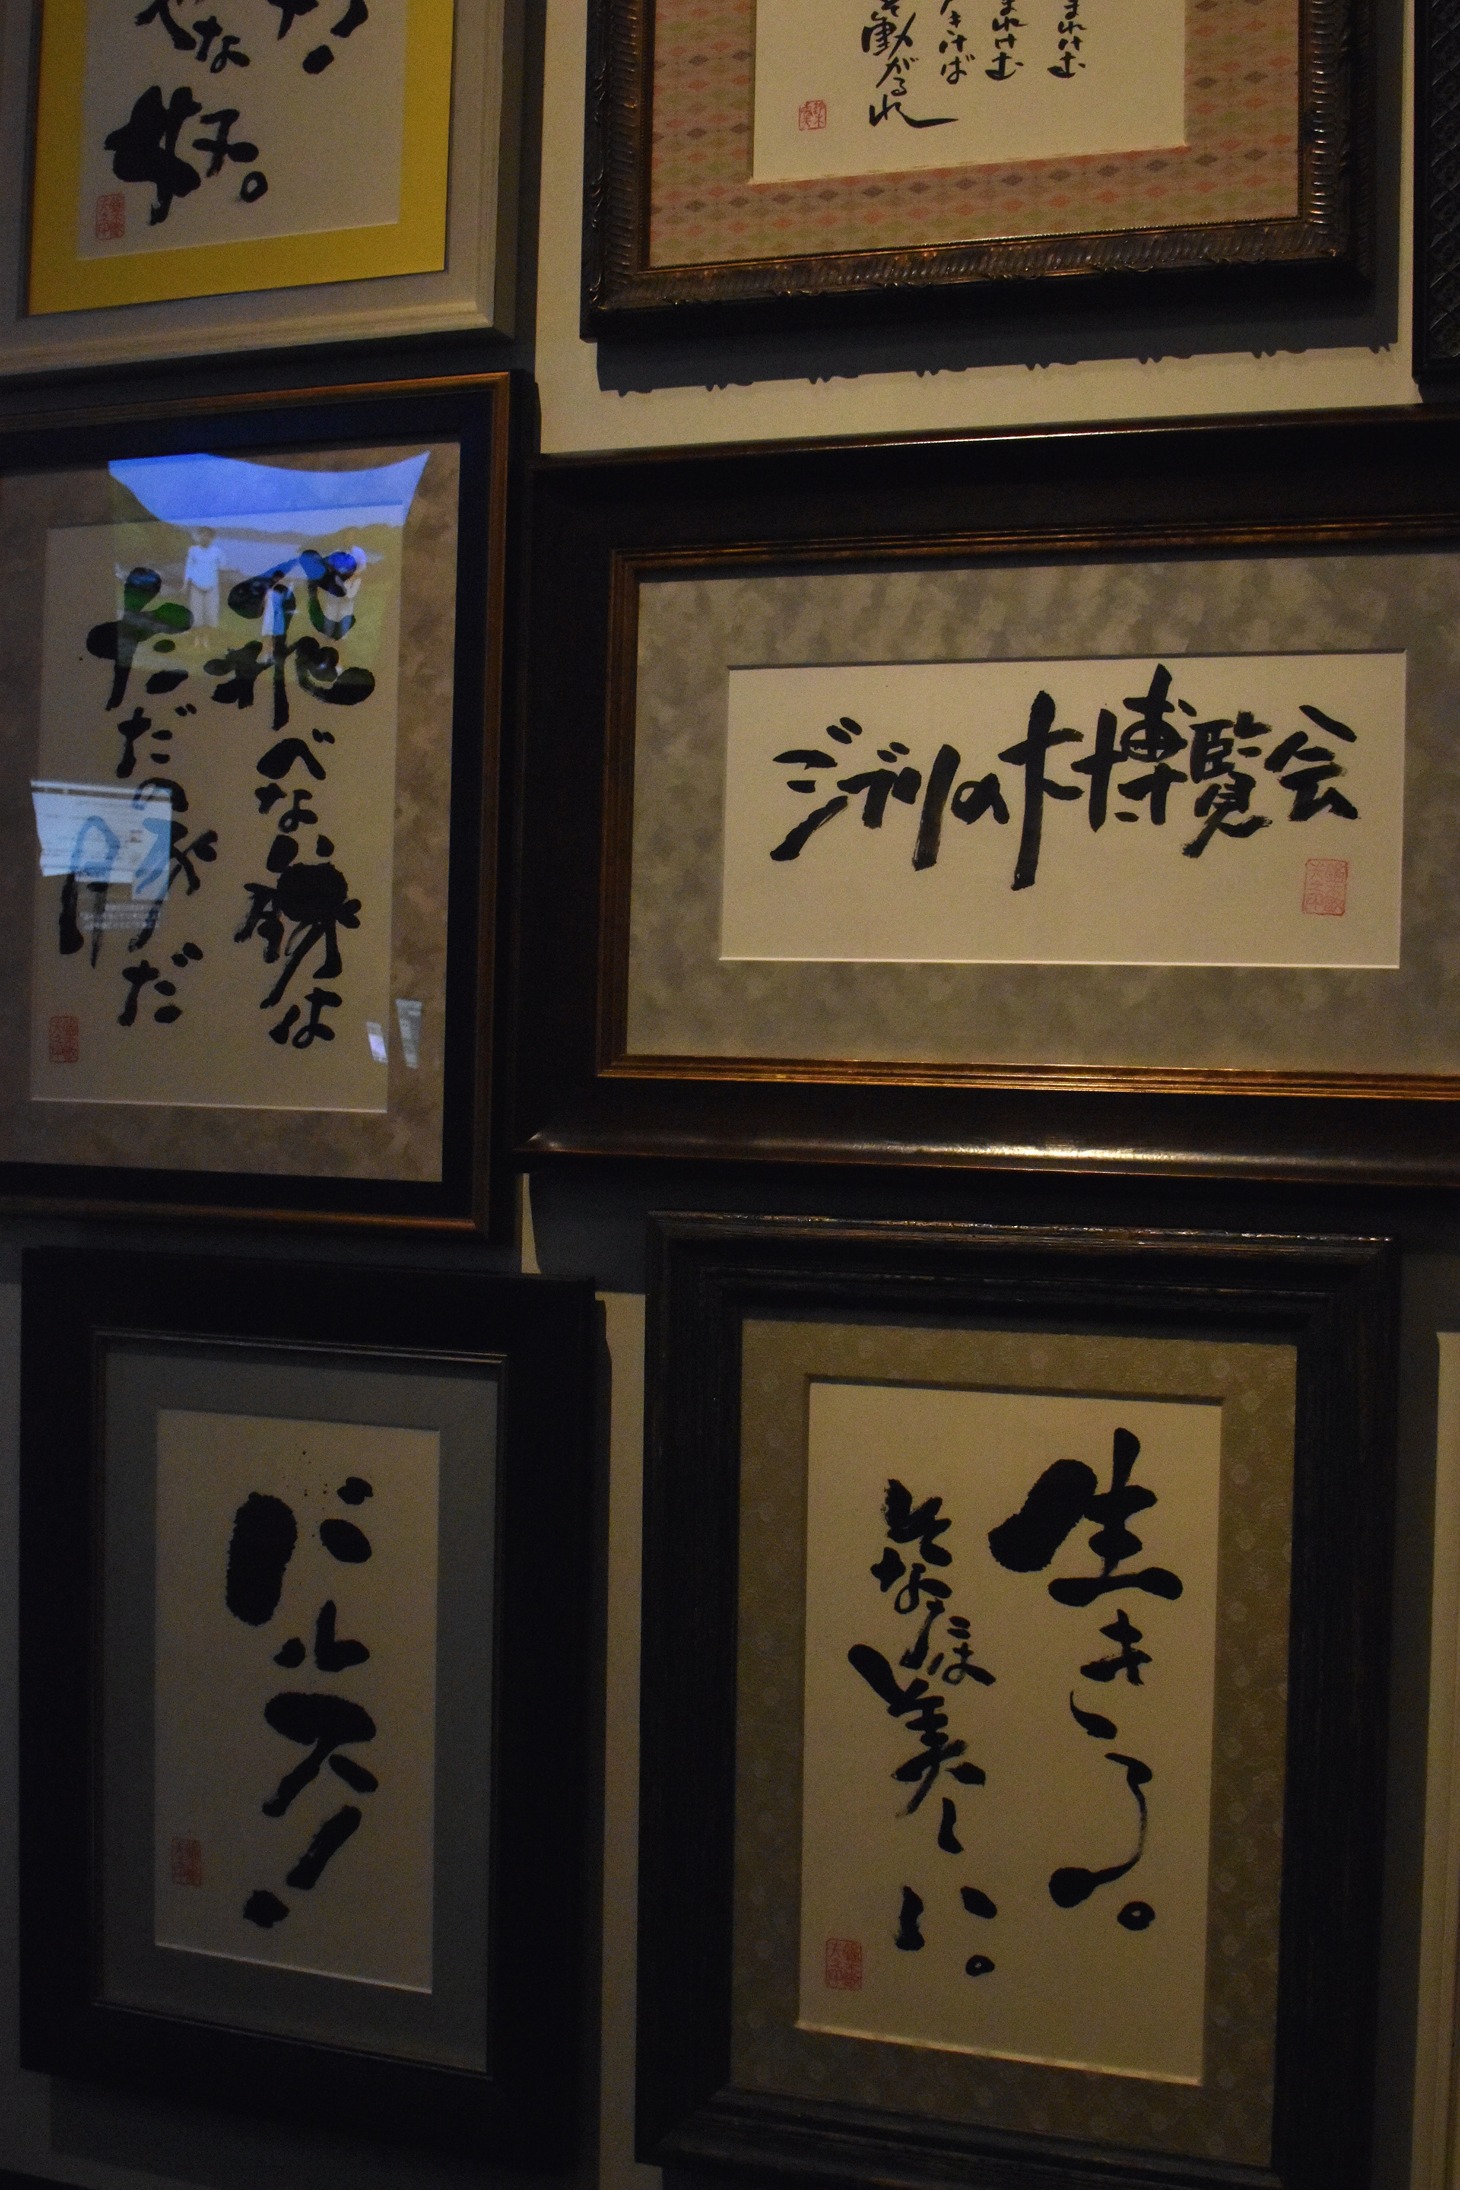 な奴。
まれけむ
まれけむ
きけば
動がるれ
飛べない豚は
ただの豚だ
ジブリの大博覧会
バルス!
生きろ。
そなたは美しい。